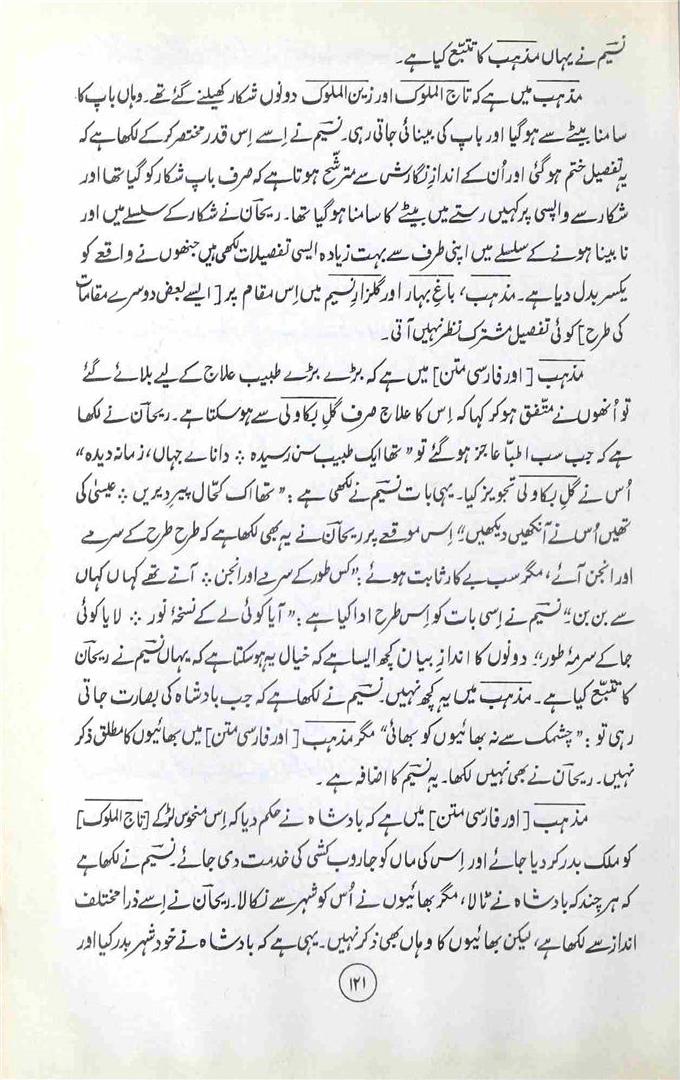 نسیم نے یہاں مذہب کا تتبّع کیا ہے۔
مذہب میں ہے کہ تاج الملوک اور زین الملوک دونوں شکار کھیلنے گئے تھے۔ وہاں باپ کا
سامنا بیٹے سے ہو گیا اور باپ کی بینائی جاتی رہی۔ نسیم نے اِسے اِس قدر مختصر کر کے لکھا ہے کہ
یہ تفصیل ختم ہو گئی اور اُن کے اندازِ نگارش سے مترشّح ہوتا ہے کہ صرف باپ شکار کو گیا تھا اور
شکار سے واپسی پر کہیں رستے میں بیٹے کا سامنا ہو گیا تھا۔ ریحان نے شکار کے سلسلے میں اور
نابینا ہونے کے سلسلے میں اپنی طرف سے بہت زیادہ ایسی تفصیلات لکھی ہیں جنھوں نے واقعے کو
یکسر بدل دیا ہے۔ مذہب، باغ بہار اور گلزارِ نسیم میں اِس مقام پر [ایسے بعض دوسرے مقامات
کی طرح] کوئی تفصیل مشترک نظر نہیں آتی۔
مذہب [اور فارسی متن] میں ہے کہ بڑے بڑے طبیب علاج کے لیے بلائے گئے
تو اُنھوں نے متّفق ہو کر کہا کہ اِس کا علاج صرف گلِ بکاولی سے ہو سکتا ہے۔ ریحان نے لکھا
ہے کہ جب سب اطبّا عاجز ہو گئے تو "تھا ایک طبیب سن رسیدہ ؞ داناے جہاں، زمانہ دیدہ"
اُس نے گلِ بکاولی تجویز کیا۔ یہی بات نسیم نے لکھی ہے: "تھا اک کحّال پیرِ دیریں ؞ عیسیٰ کی
تھیں اُس نے آنکھیں دیکھیں"۔ اِس موقعے پر ریحان نے یہ بھی لکھا ہے کہ طرح طرح کے سرمے
اور انجن آئے، مگر سب بے کار ثابت ہوئے: "کس طور کے سرمے اور انجن ؞ آتے تھے کہاں کہاں
سے بن بن"۔ نسیم نے اِسی بات کو اِس طرح ادا کیا ہے: "آیا کوئی لے کے نسخۂ نور ؞ لایا کوئی
جا کے سرمۂ طور"۔ دونوں کا اندازِ بیان کچھ ایسا ہے کہ خیال یہ ہو سکتا ہے کہ یہاں نسیم نے ریحان
کا تتبّع کیا ہے۔ مذہب میں یہ کچھ نہیں۔ نسیم نے لکھا ہے کہ جب بادشاہ کی بصارت جاتی
رہی تو: "چشمک سے نہ بھائیوں کو بھائی" مگر مذہب [اور فارسی متن] میں بھائیوں کا مطلق ذکر
نہیں۔ ریحان نے بھی نہیں لکھا۔ یہ نسیم کا اضافہ ہے۔
مذہب [اور فارسی متن] میں ہے کہ بادشاہ نے حکم دیا کہ اِس منحوس لڑکے [تاج الملوک]
کو ملک بدر کر دیا جائے اور اِس کی ماں کو جاروب کشی کی خدمت دی جائے۔ نسیم نے لکھا ہے
کہ ہر چند کہ بادشاہ نے ٹالا، مگر بھائیوں نے اُس کو شہر سے نکالا۔ ریحان نے اِسے ذرا مختلف
انداز سے لکھا ہے، لیکن بھائیوں کا وہاں بھی ذکر نہیں۔ یہی ہے کہ بادشاہ نے خود شہر بدر کیا اور
۱۲۱